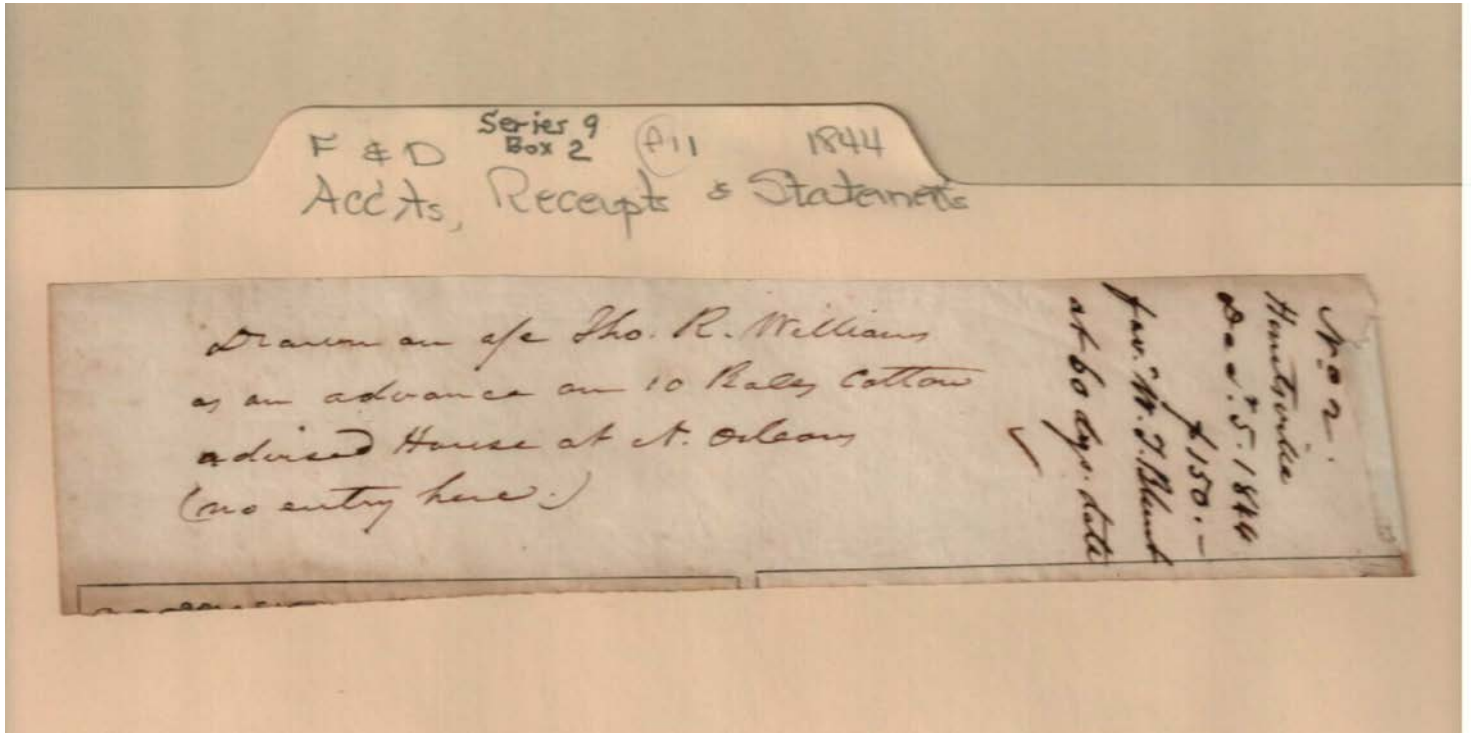 F & D Series 9 1844
Box 2
Acc'ts, Receipts & Statements
Drawn on a/c Tho. R. Williams
as an advance on 10 Bales Cotton
advised House at N. Orleans
(no entry here.)
No 2.
Huntsville
Dec.r 5. 1844
$150.–
fav. W. T. Blunt
at 60 dys. date